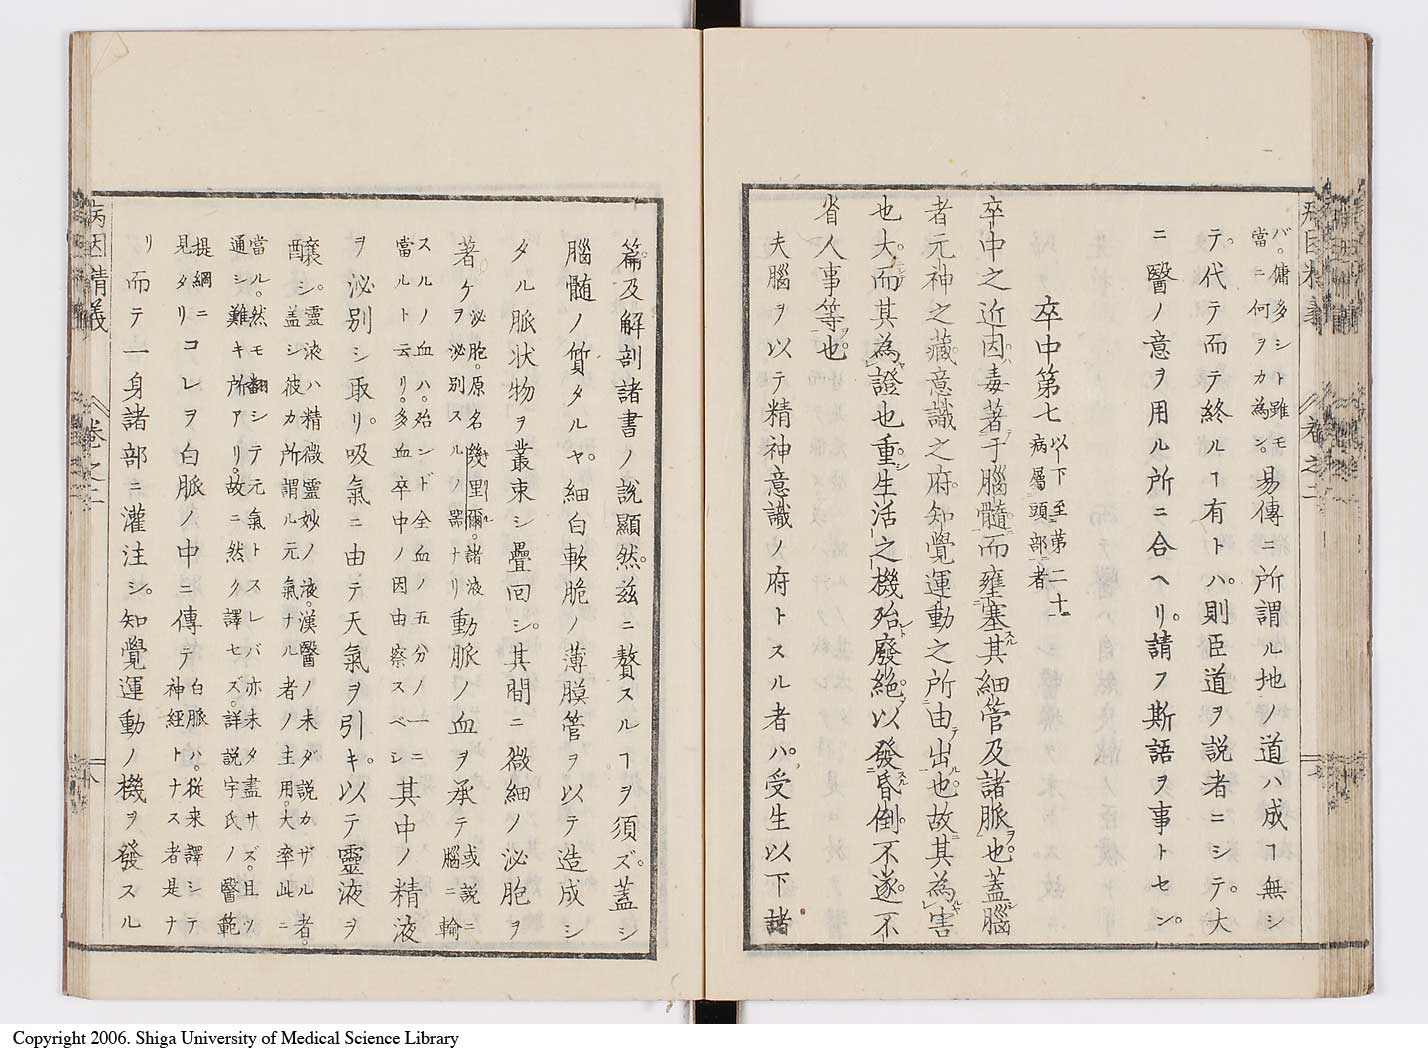 バ。傭多シト雖モ
當ニ何ヲカ為シ。
易傳ニ所謂ル地ノ道ハ成ヿ無シ
テ。代テ而テ終ルヿ有トハ。則臣道ヲ説者ニシテ。大
ニ醫ノ意ヲ用ル所ニ合ヘリ。請フ斯語ヲ事トセン。
卒中第七
以下至第二十
病屬頭部者
卒中之近因ハ毒著于腦髓ニ而壅塞其細管及諸脈ヲ也。蓋腦
者元神之藏。意識之府。知覺運動之所由出也。故其為害
也大。而其為證也重。生活之機殆廢絶。以發昏倒。不遂。不
省人事等ヲ也。
夫腦ヲ以テ精神意識ノ府トスル者ハ。受生以下諸
篇及解剖諸書ノ說顯然。玆ニ贅スルヿヲ須ズ。蓋シ
腦髓ノ質タルヤ。細白軟脆ノ薄膜管ヲ以テ造成シ
タル脈状物ヲ叢束シ疊囘シ。其間ニ微細ノ泌胞ヲ
著ケ
泌胞。原名幾里爾。諸液
ヲ泌別スルノ器ナリ
動脈ノ血ヲ承テ
或説ニ
腦ニ輸
スルノ血ハ。殆ンド全血ノ五分ノ一ニ
當ルト云リ。多血卒中ノ因由察スベシ
其中ノ精液
ヲ泌別シ取リ。吸氣ニ由テ天氣ヲ引キ。以テ靈液ヲ
釀シ。
靈液ハ精微靈妙ノ液。漢醫ノ未ダ説カザル者。
蓋シ彼カ所謂ル元氣ナル者ノ主用。大率此ニ
當ル。然モ翻シテ元氣トスレバ亦未タ盡サズ。且ツ
通シ難キ所アリ。故ニ然ク譯セズ。詳説宇氏ノ醫範
提綱ニ
見タリ
コレヲ白脈ノ中ニ傳テ
白脈ハ。従来譯シテ
神経トナス者是ナ
リ
而テ一身諸部ニ灌注シ。知覺運動ノ機ヲ發スル
病因精義
卷之二
八